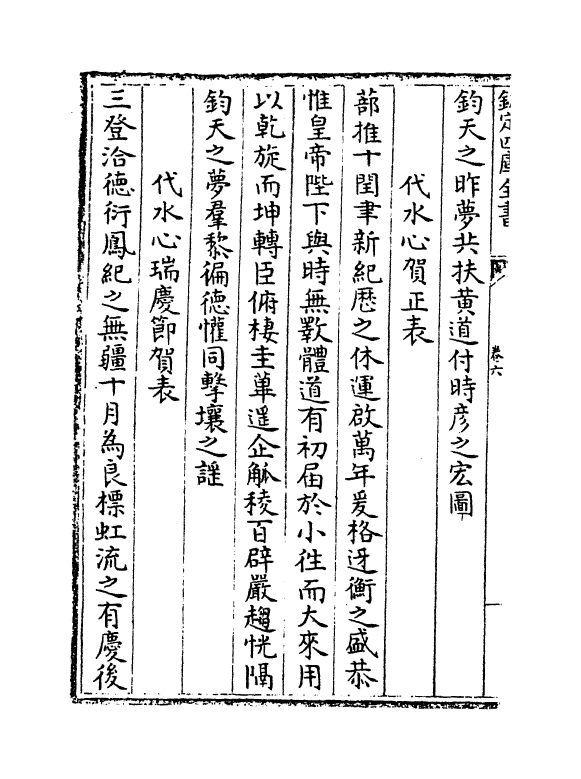 欽定四庫全書
卷六
鈞天之昨夢共扶黄道付時彦之宏圖
代水心賀正表
蔀推十閏聿新紀歷之休運啟萬年爰格迓衡之盛恭
惟皇帝陛下與時無斁體道有初届於小往而大來用
以乾旋而坤轉臣俯棲圭蓽遥企觚稜百辟嚴趨恍隔
鈞天之夢羣黎徧德懽同擊壤之謡
代水心瑞慶節賀表
三登洽德衍鳳紀之無疆十月為良標虹流之有慶後